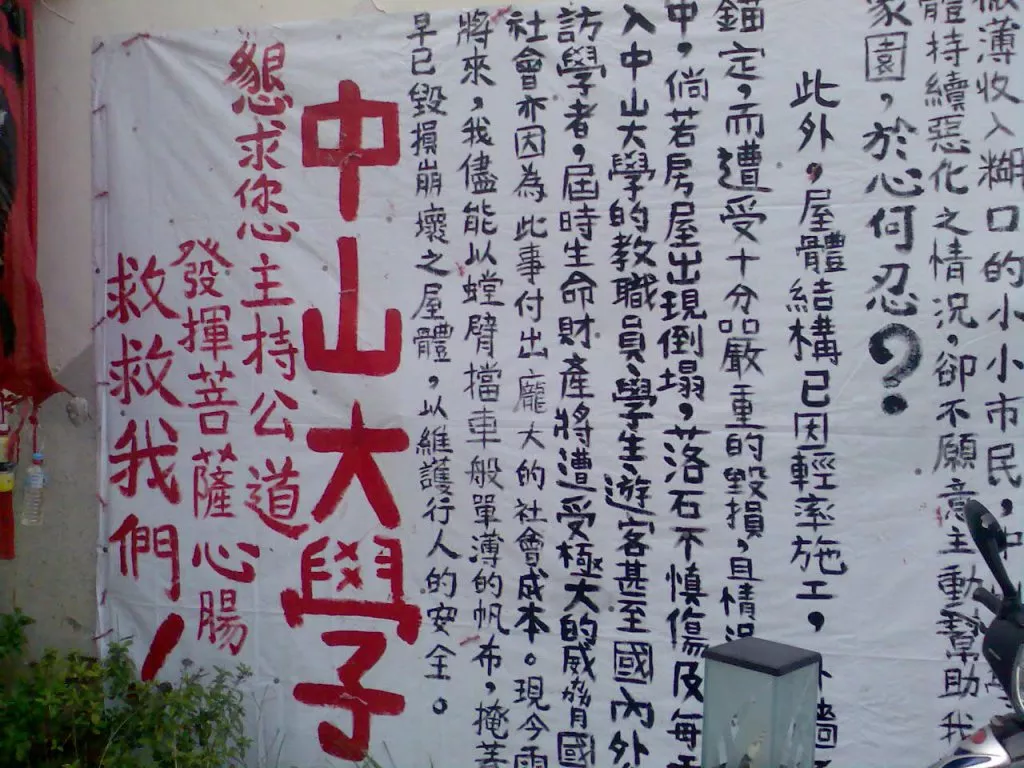 微薄收入糊口的小小市民,中山
體持續惡化之情況,卻不願意主動幫助我
家園,於心何忍?
此外,屋體結構已因輕率施工,外牆
錨定,而遭受十分嚴重的毀損,且情況
中,倘若房屋出現倒塌,落石不慎傷及每天
入中山大學的教職員、學生、遊客甚至國內外
訪學者,屆時生命財產將遭受極大的威脅國
社會亦因為此事付出龐大的社會成本。現今雨
將來,我儘能以螳臂擋車般單薄的帆布,掩蓋
早已毀損崩壞之屋體,以維護行人的安全。
中山大學
懇求您主持公道
發揮菩薩心腸
救救我們!